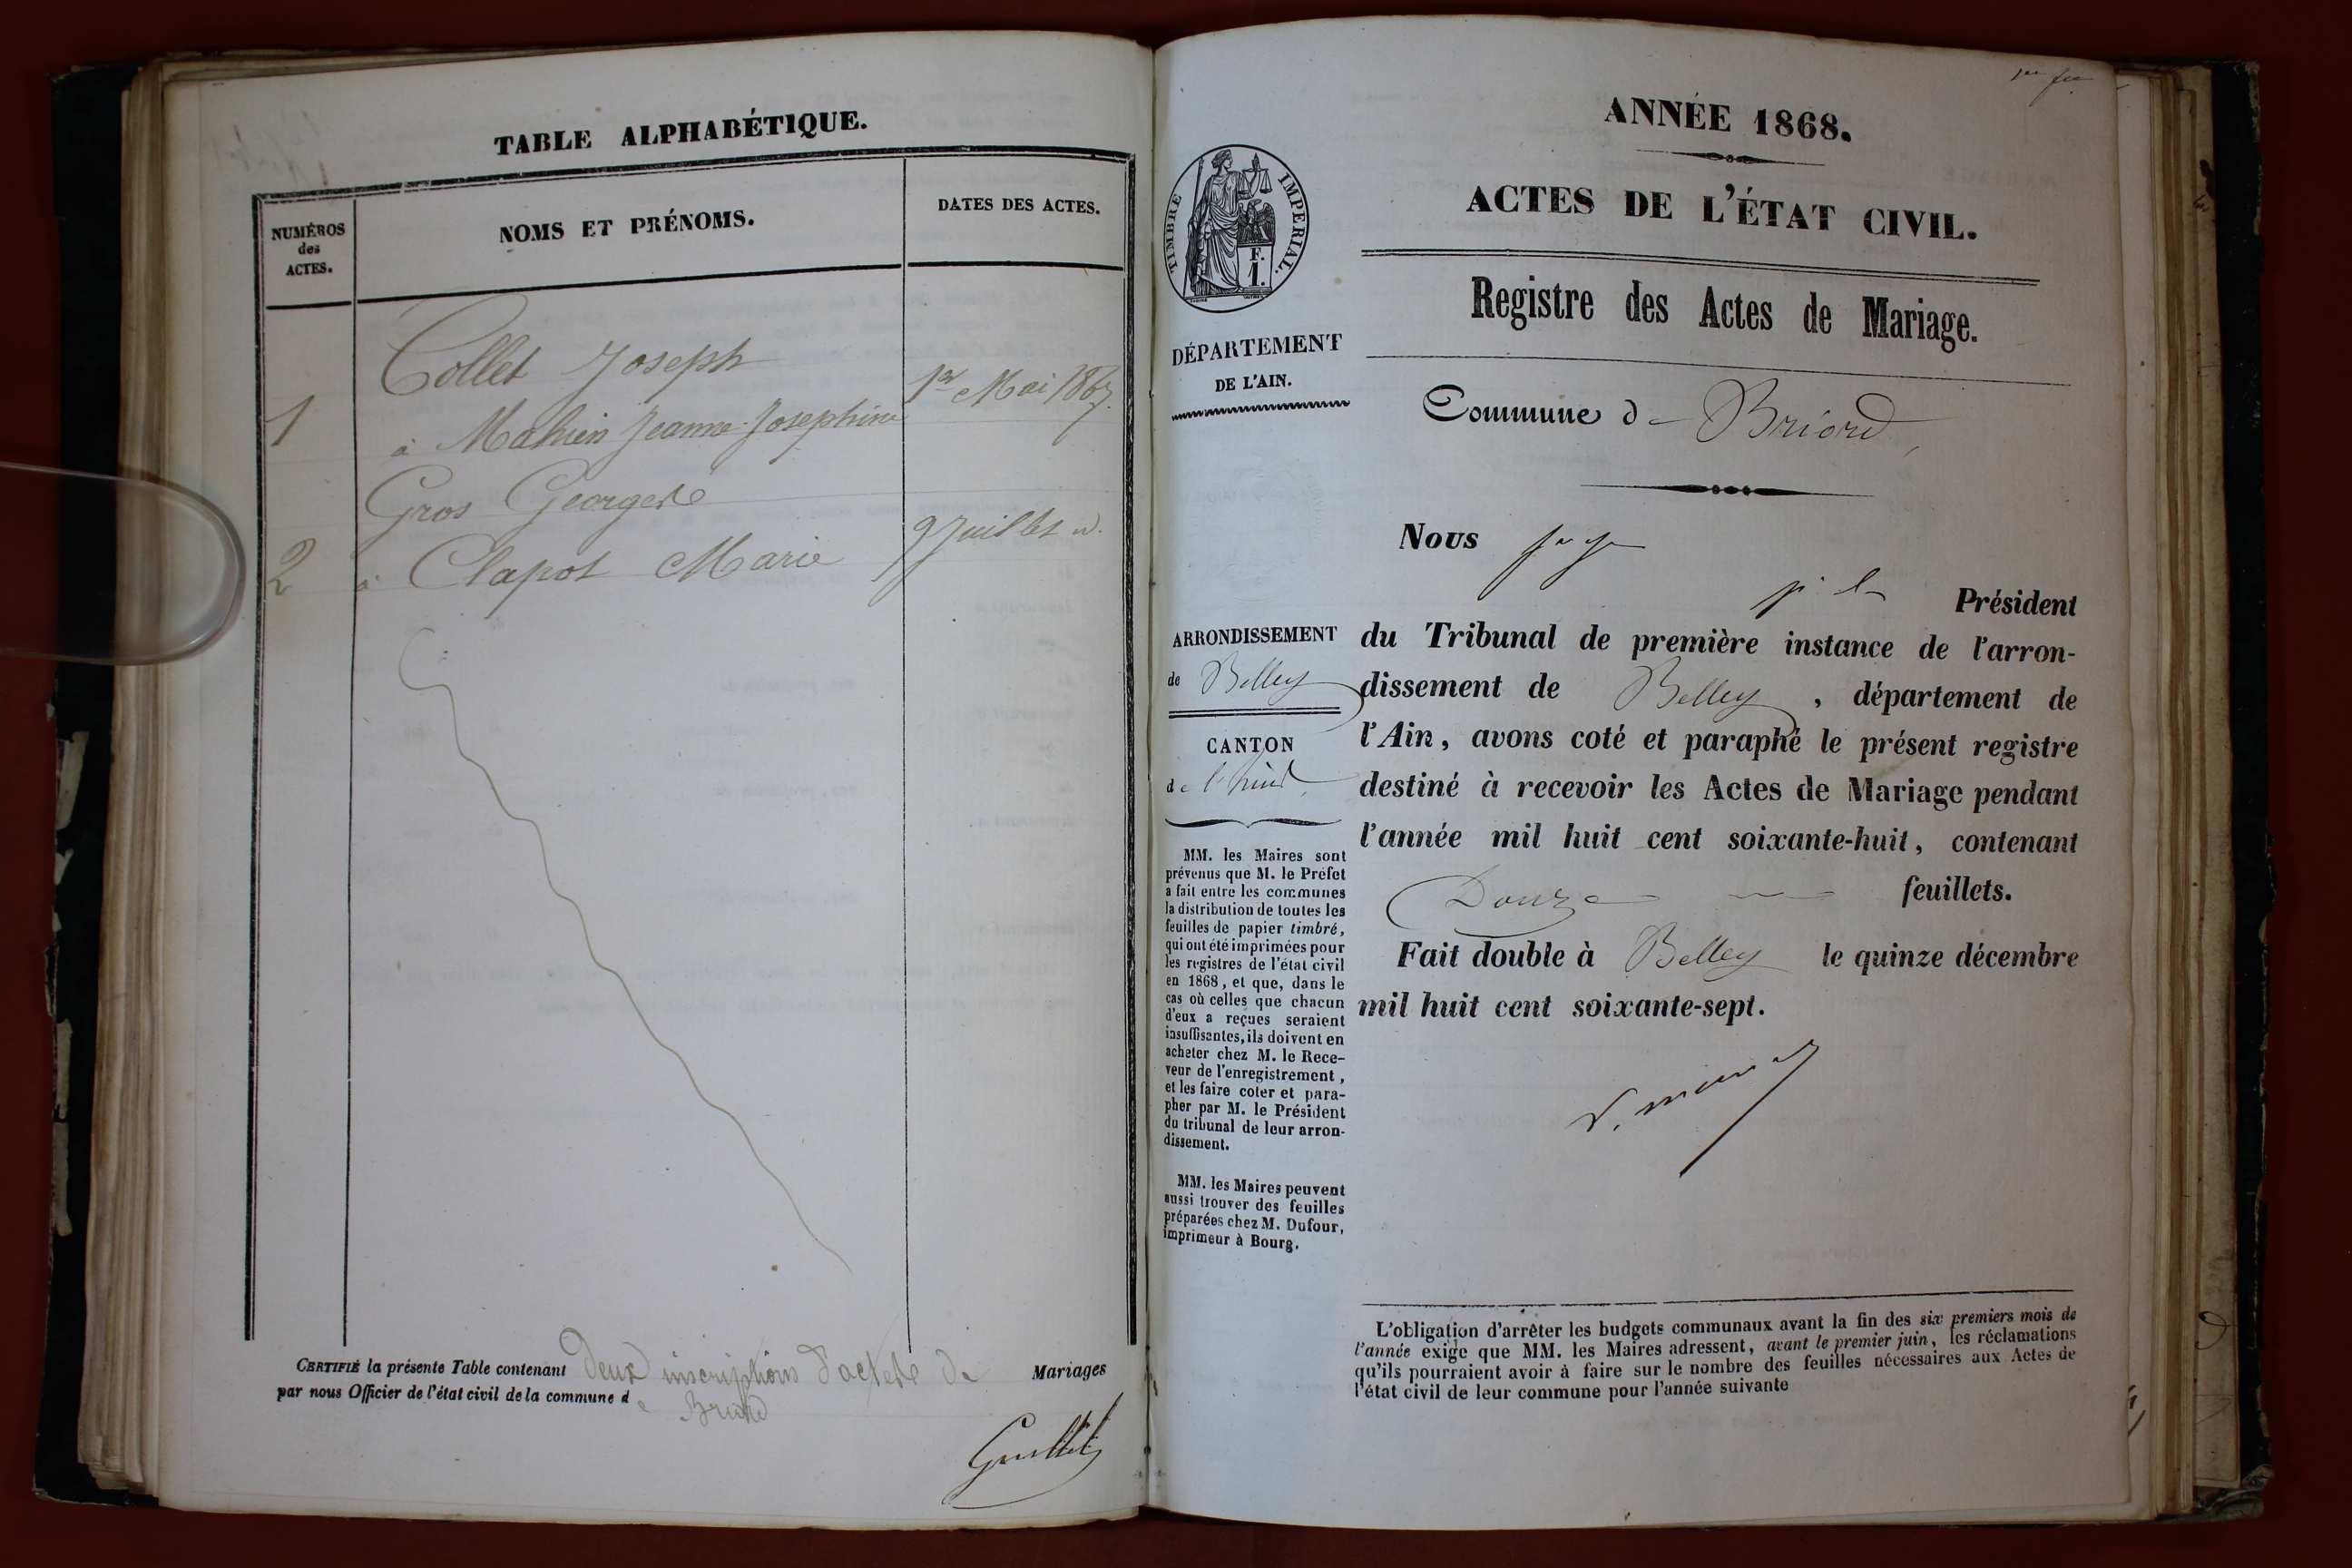 TABLE ALPHABÉTIQUE.
NUMÉROS
des
ACTES.
NOMS ET PRÉNOMS.
DATES DES ACTES.
Collet Joseph
1
à Mahien Jeanne-Josephine
1er Mai 1867.
Gros George
2
à Clapot Marie
9 Juillet
CERTIFIÉ la présente Table contenant deux inscriptions d'acte de Mariages
par nous Officier de l'état civil de la commune de Briord
1er
ANNÉE 1868.
ACTES DE L'ÉTAT CIVIL.
Registre des Actes de Mariage.
TIMBRE IMPERIAL.
F.
1.
DÉPARTEMENT
DE L'AIN.
Commune de Briord
Nous juge
Président
du Tribunal de première instance de l'arron-
dissement de Belley, département de
l'Ain, avons coté et paraphé le présent registre
destiné à recevoir les Actes de Mariage pendant
l'année mil huit cent soixante-huit, contenant
Douze feuillets.
Fait double à Belley le quinze décembre
mil huit cent soixante-sept.
ARRONDISSEMENT
de Belley
CANTON
de
MM. les Maires sont
prévenus que M. le Préfet
a fait entre les communes
la distribution de toutes les
feuilles de papier timbré,
qui ont été imprimées pour
les registres de l'état civil
en 1868, et que, dans le
cas où celles que chacun
d'eux a reçues seraient
insuffisantes, ils doivent en
acheter chez M. le Rece-
veur de l'enregistrement,
et les faire coter et para-
pher par M. le Président
du tribunal de leur arron-
dissement.
MM. les Maires peuvent
aussi trouver des feuilles
préparées chez M. Dufour,
imprimeur à Bourg.
L'obligation d'arrêter les budgets communaux avant la fin des six premiers mois de
l'année exige que MM. les Maires adressent, avant le premier juin, les réclamations
qu'ils pourraient avoir à faire sur le nombre des feuilles nécessaires aux Actes de
l'état civil de leur commune pour l'année suivante